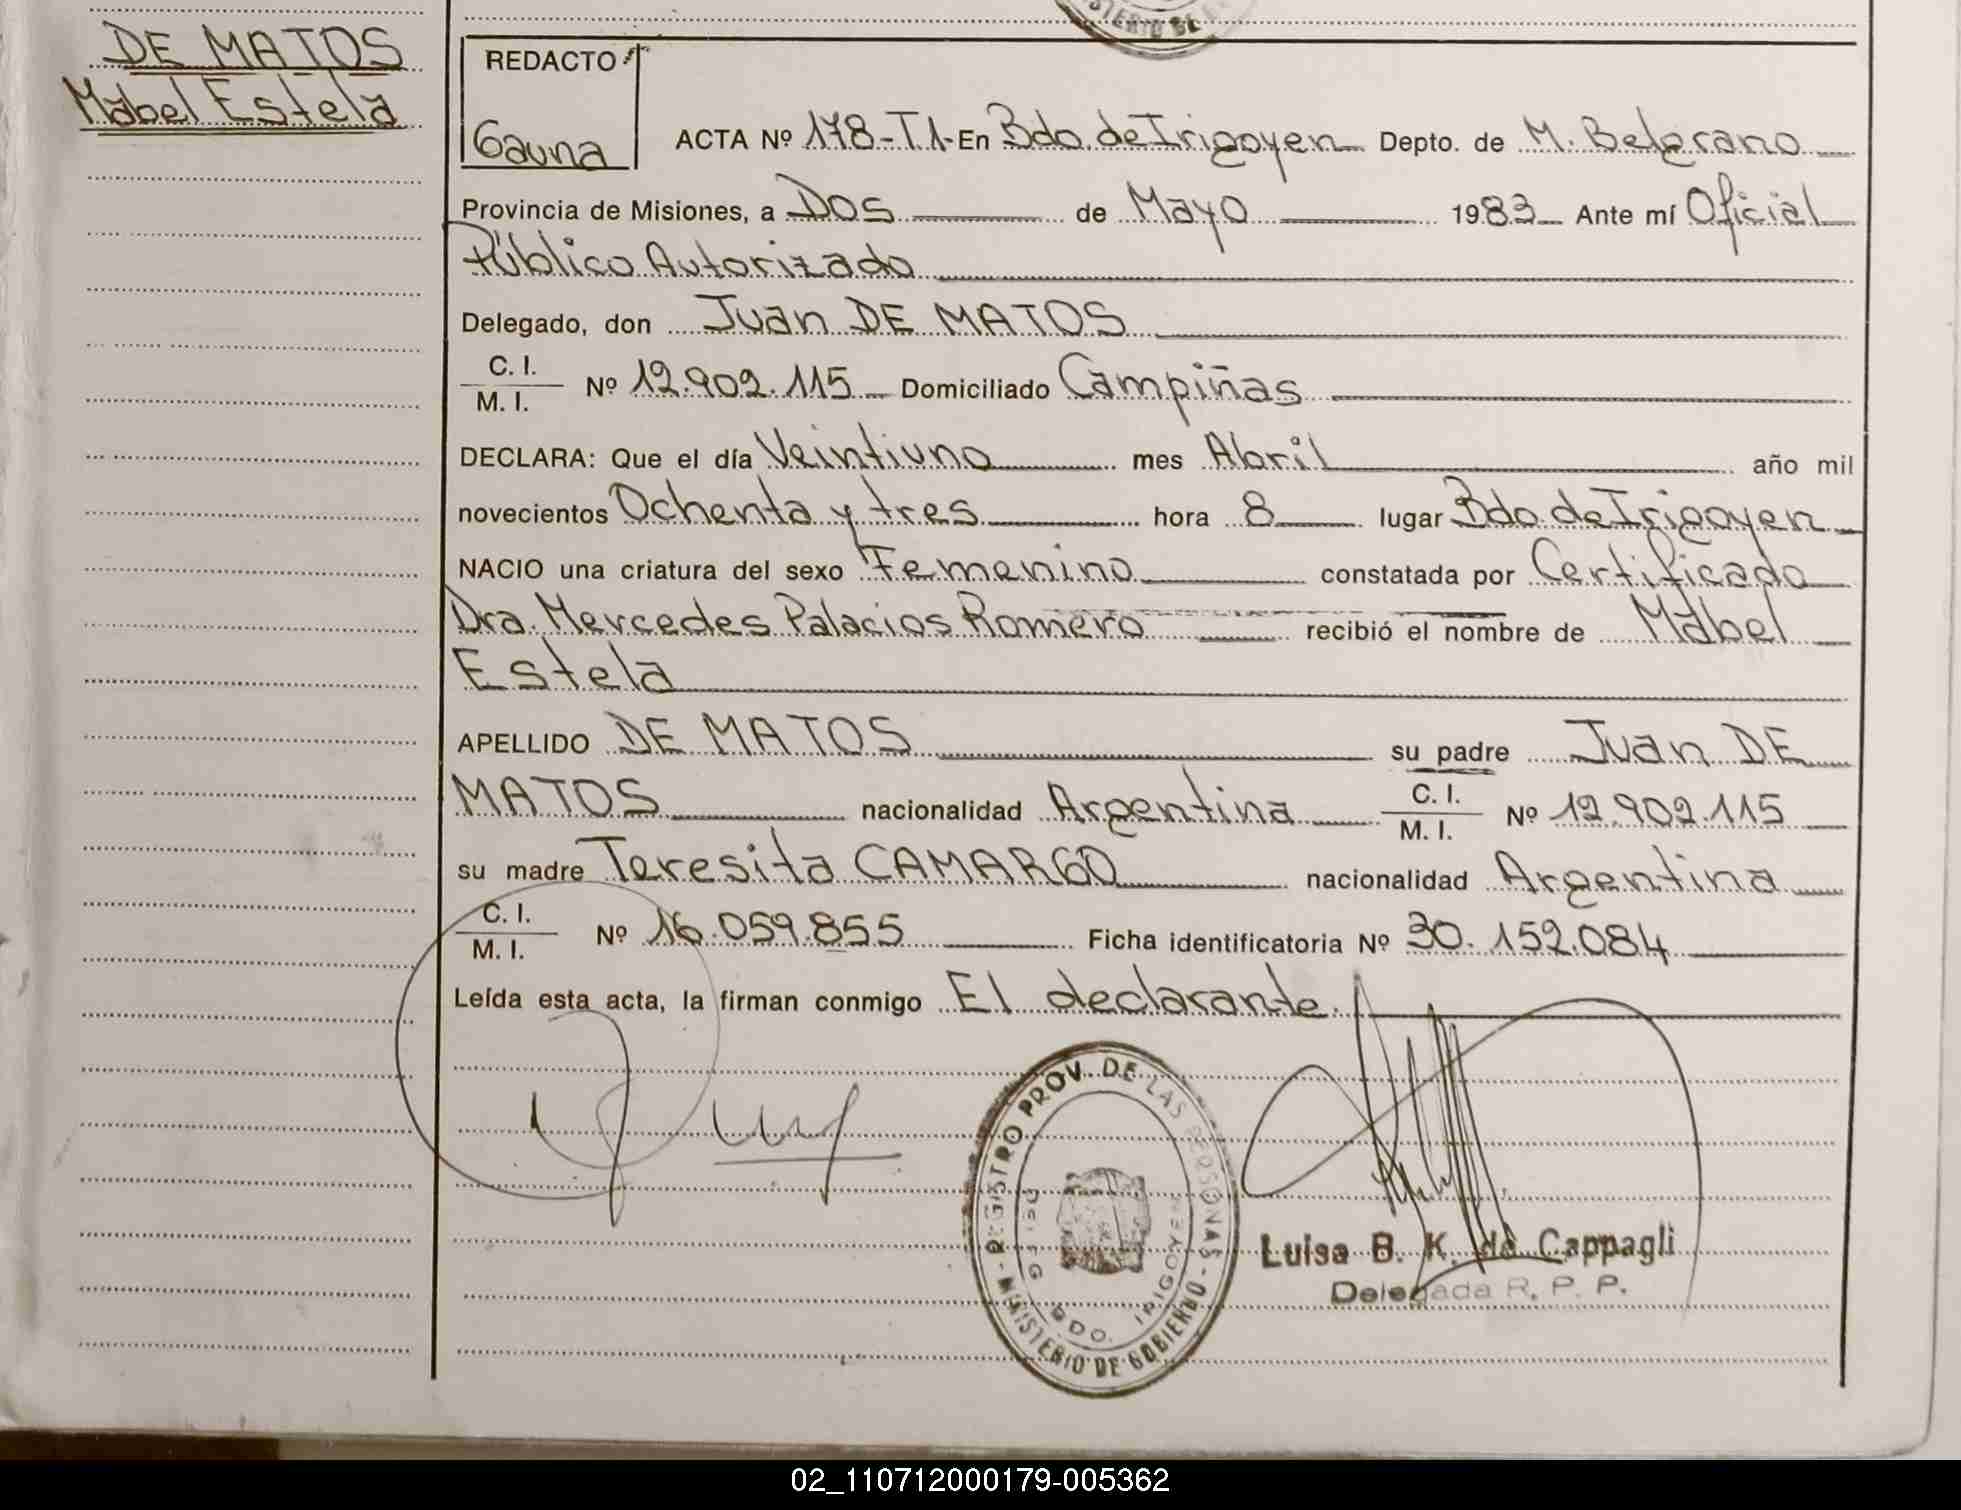 DE MATOS
Mabel Estela
REDACTO
Gauna
ACTA Nº 178-T.1- En Bdo. de Irigoyen Depto. de M. Belgrano
Provincia de Misiones, a Dos de Mayo 1983 Ante mí Oficial
Público Autorizado
Delegado, don Juan DE MATOS
C. I.
M. I. Nº 12.902.115 Domiciliado Campiñas
DECLARA: Que el día Veintiuno mes Abril año mil
novecientos Ochenta y tres hora 8 lugar Bdo. de Irigoyen
NACIO una criatura del sexo Femenino constatada por Certificado
Dra. Mercedes Palacios Romero recibió el nombre de Mabel
Estela
APELLIDO DE MATOS su padre Juan DE
MATOS nacionalidad Argentina C. I. M. I. Nº 12.902.115
su madre Teresita CAMARGO nacionalidad Argentina
C. I.
M. I. Nº 16.059.855 Ficha identificatoria Nº 30.152.084
Leída esta acta, la firman conmigo El declarante.
REGISTRO PROV. DE LAS PERSONAS - MINISTERIO DE GOBIERNO -
BDO. IRIGOYEN
Luisa B. K. de Cappagli
Delegada R. P. P.
02_110712000179-005362